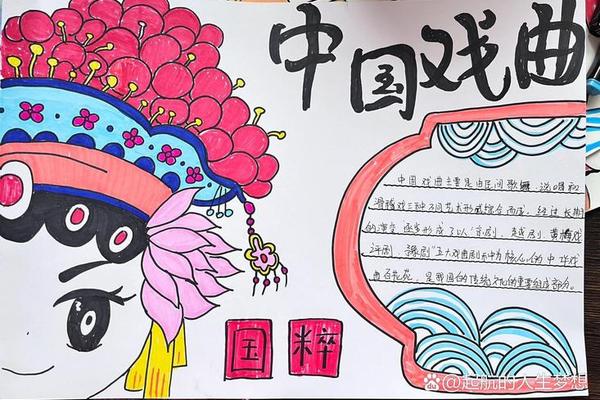 中国戏曲
中国戏曲主要是由民间歌舞、说唱和
滑稽戏三种不同艺术形式综合而成。经过长期
的演变逐步形成了以“京剧、越剧、黄梅戏
评剧、豫剧”五大戏曲剧种为核心的中华戏
曲百花苑，是我国的传统文化的重要组成部分。
国粹
@起航的人生梦想